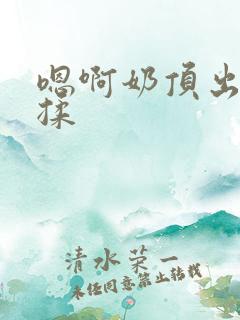 嗯啊奶頂出
揉
清水菜一
未经同意禁止转载